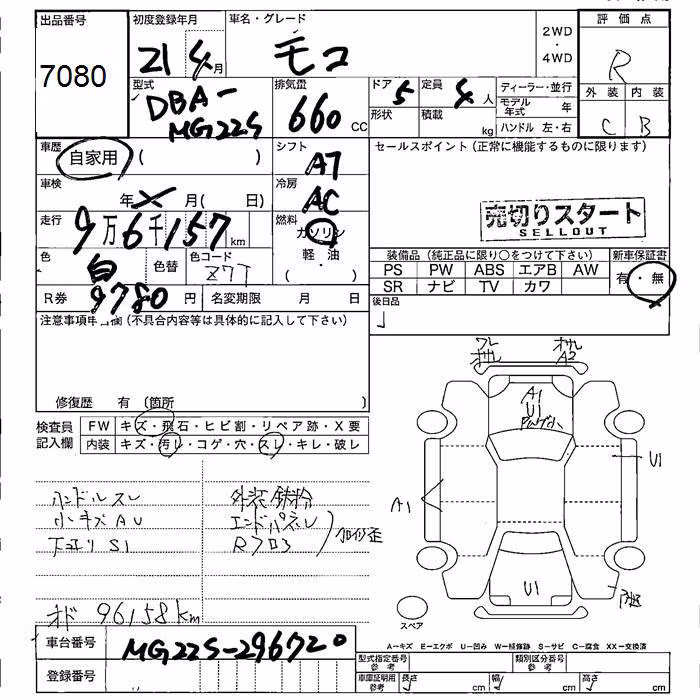 出品番号 初度登録年月 車名・グレード 2WD 評価点
7080 21年4月 モコ ・ R
4WD
型式 排気量 ドア 5 定員 4人 ディーラー・並行 外装 内装
DBA-MG22S 660 CC 形状 積載 kg モデル年式 年 C B
ハンドル 左・右
車歴 自家用 ( ) シフト AT セールスポイント(正常に機能するものに限ります)
車検 年 × 月( 日) 冷房 AC
売切りスタート
SELLOUT
走行 9万6千157km 燃料 ガソリン
軽・油
色 白 色替 色コード Z7T
装備品(純正品に限り○をつけて下さい) 新車保証書
PS PW ABS エアB AW 有・無
SR ナビ TV カワ
R券 9780円 名変期限 月 日 後日品
注意事項申告欄(不具合内容等は具体的に記入して下さい)
修復歴 有 (箇所 )
検査員 FW キズ・飛石・ヒビ割・リペア跡・X要
記入欄 内装 キズ・汚レ・コゲ・穴・スレ・キレ・破レ
ハンドルスレ 外装鉄粉
小キズAU エンドパネル
下廻りS1 Rフロア
加修歪
オド 96158km
ワレ
オサレ
オサレ
A2
A1
U1
U1
A1
U1
スペア
A-キズ E-エクボ U-凹み W-補修跡 S-サビ C-腐食 XX-交換済
車台番号 MG22S-296720
登録番号
型式指定番号 参考 類別区分番号 参考
車庫証明用 参考 長さ cm 幅 cm 高さ cm